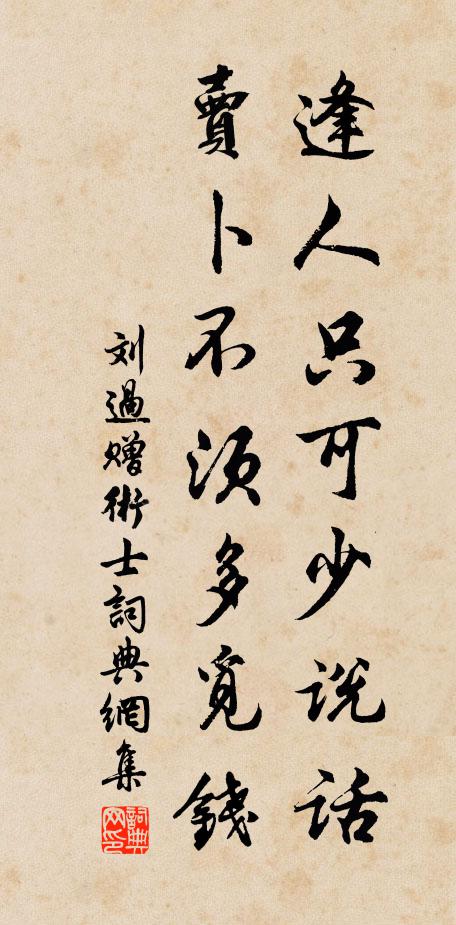 逢人只可少说话
賣卜不须多覓錢
刘過贈術士詞典網集
詞典网印